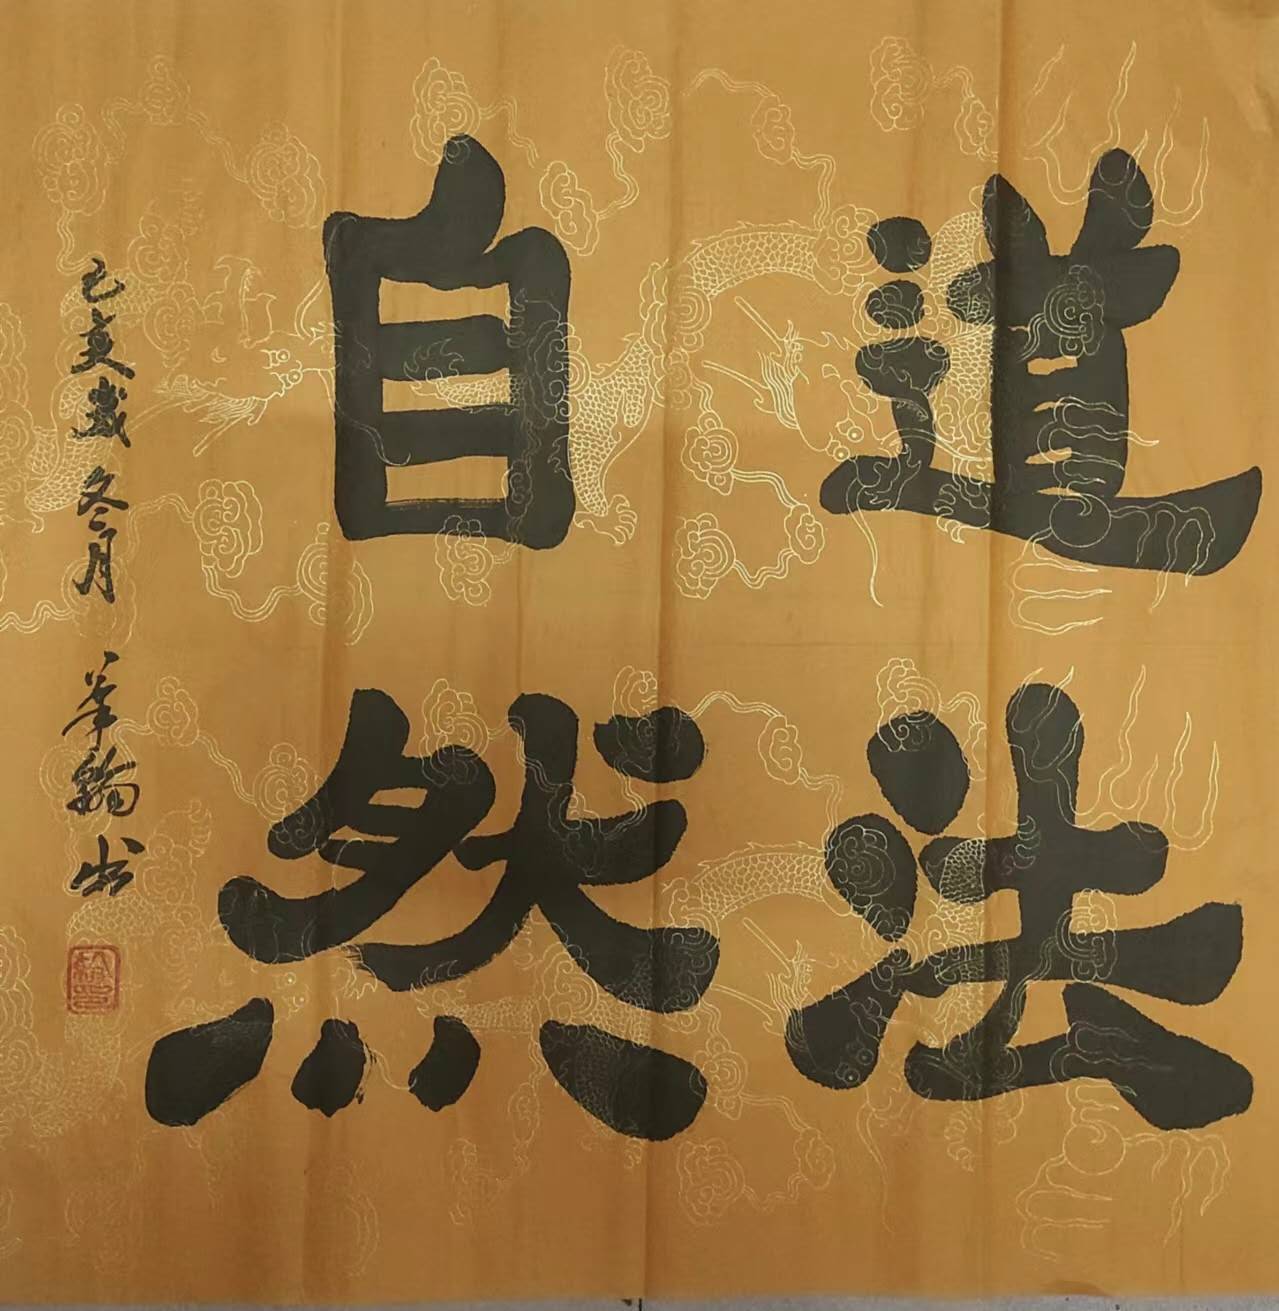 道法
自然
己亥岁冬月